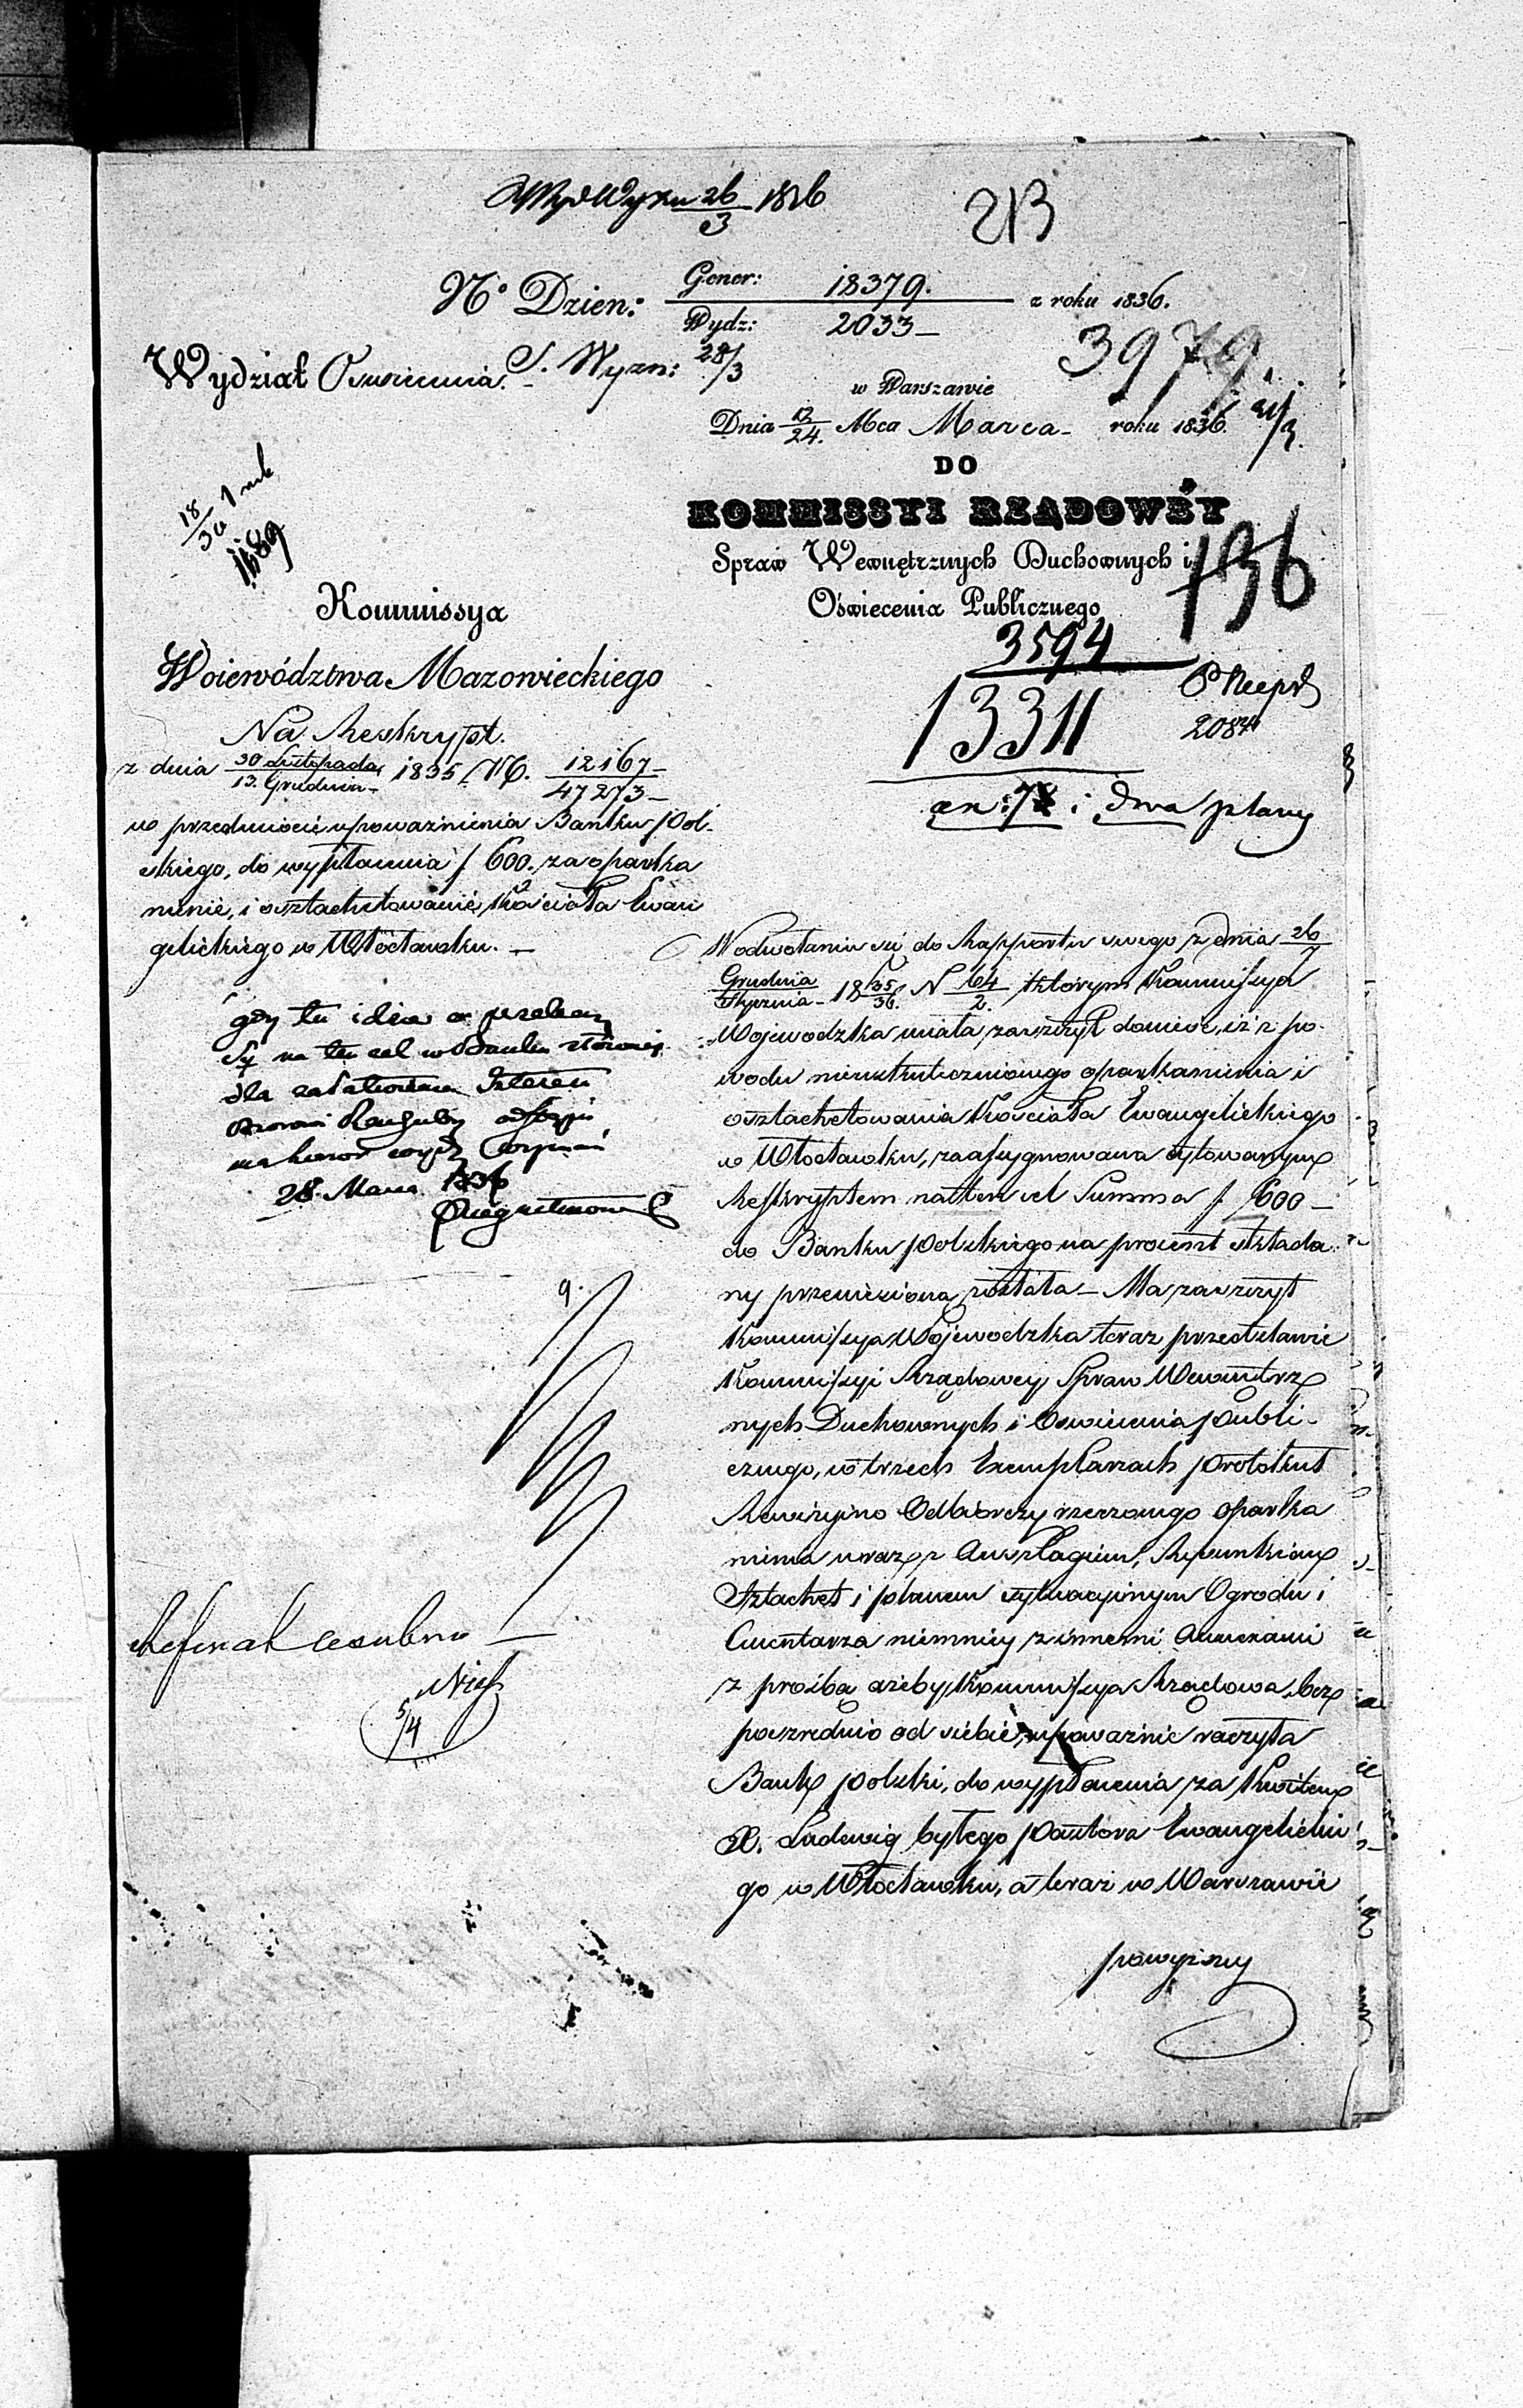 26/3 1836
213
N.º Dzien: Gener: 18379. z roku 1836.
Wydz: 2033 —
Wydział Oswiecenia. S. Wyzn: 28/3
3979.
w Warszawie
Dnia 12/24. Mca Marca — roku 1836. 31/3.
DO
KOMMISSYI RZĄDOWÉY
Spraw Wewnętrznych Duchownych i
Oświecenia Publicznego
136
18/30
1689
3594
13311
2084
an: i dwa plany
Kommissya
Woiewództwa Mazowieckiego
Na Reskrypt.
z dnia 30 Listopada/13. Grudnia — 1835 N. 12167/47273 —
w przedmiocie upoważnienia Banku Pol-
skiego, do wypłacenia f 600. za oparka
nienie, i osztachetowanie Kościoła Ewan
gelickiego w Włocławku. —
gdy tu idzie o
na ten cel w Banku
dla
28. Marca 1836
9.
Referat osobno —
5/4
W odwołaniu się do Rapportu swego z dnia 26/7
Grudnia/Stycznia — 1835/36. N 164/2. którym Kommissya
Wojewodzka miała zaszczyt donieść, iż z po-
wodu nieuskutecznionego oparkanienia i
osztachetowania Kościoła Ewangelickiego
w Włocławku, zaassygnowana cytowanym
Reskryptem na ten cel Summa f 600 —
do Banku Polskiego na procent składa
ny przeniesiona została — Ma zaszczyt
Kommissya Wojewodzka teraz przedstawić
Kommissyi Rządowey Spraw Wewnętrz
nych Duchownych i Oswiecenia Publi-
cznego, w trzech Exemplarzach Protokuł
Rewizyino Odbiorczy rzeczonego oparka
nienia wraz z Anszlagiem, Rysunkiem
Sztachet i planem sytuacyinym Ogrodu i
Cmentarza niemniey z innemi Annexami
z prośbą ażeby Kommissya Rządowa, bez
pośrednio od siebie, upoważnić raczyła
Bank Polski, do wypłacenia za Kwitem
X. Ludewig byłego Pastora Ewangelickie
go w Włocławku, a teraz w Warszawie
powyższy